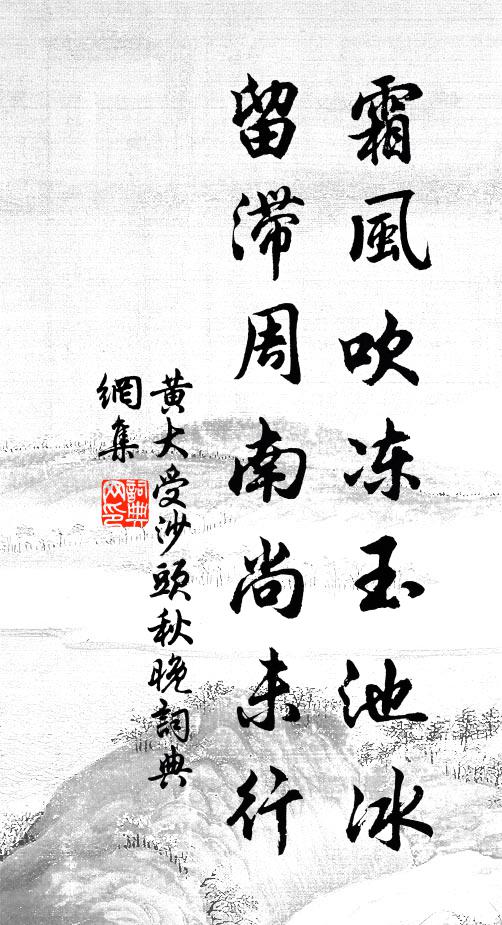 霜風吹冻玉池冰
留滯周南尚未行
黃大受沙頭秋晚詞典
網集
詞典
网印